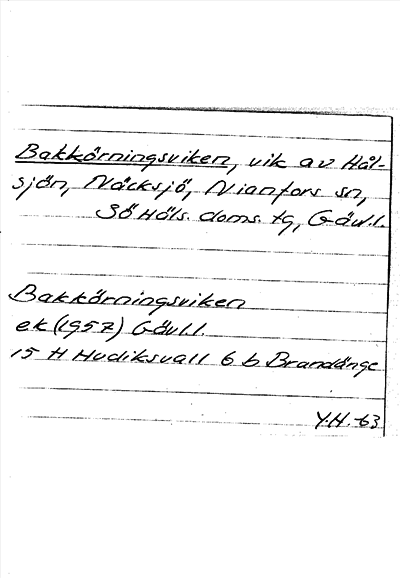 Bakkörningsviken, vik av Hål-
sjön, Näcksjö, Nianfors sn,
SöHäls. doms. tg, Gävl.l.
Bakkörningsviken
ek (1957) Gävl.l.
15 H Hudiksvall 6 b Brandänge
Y.H.-63